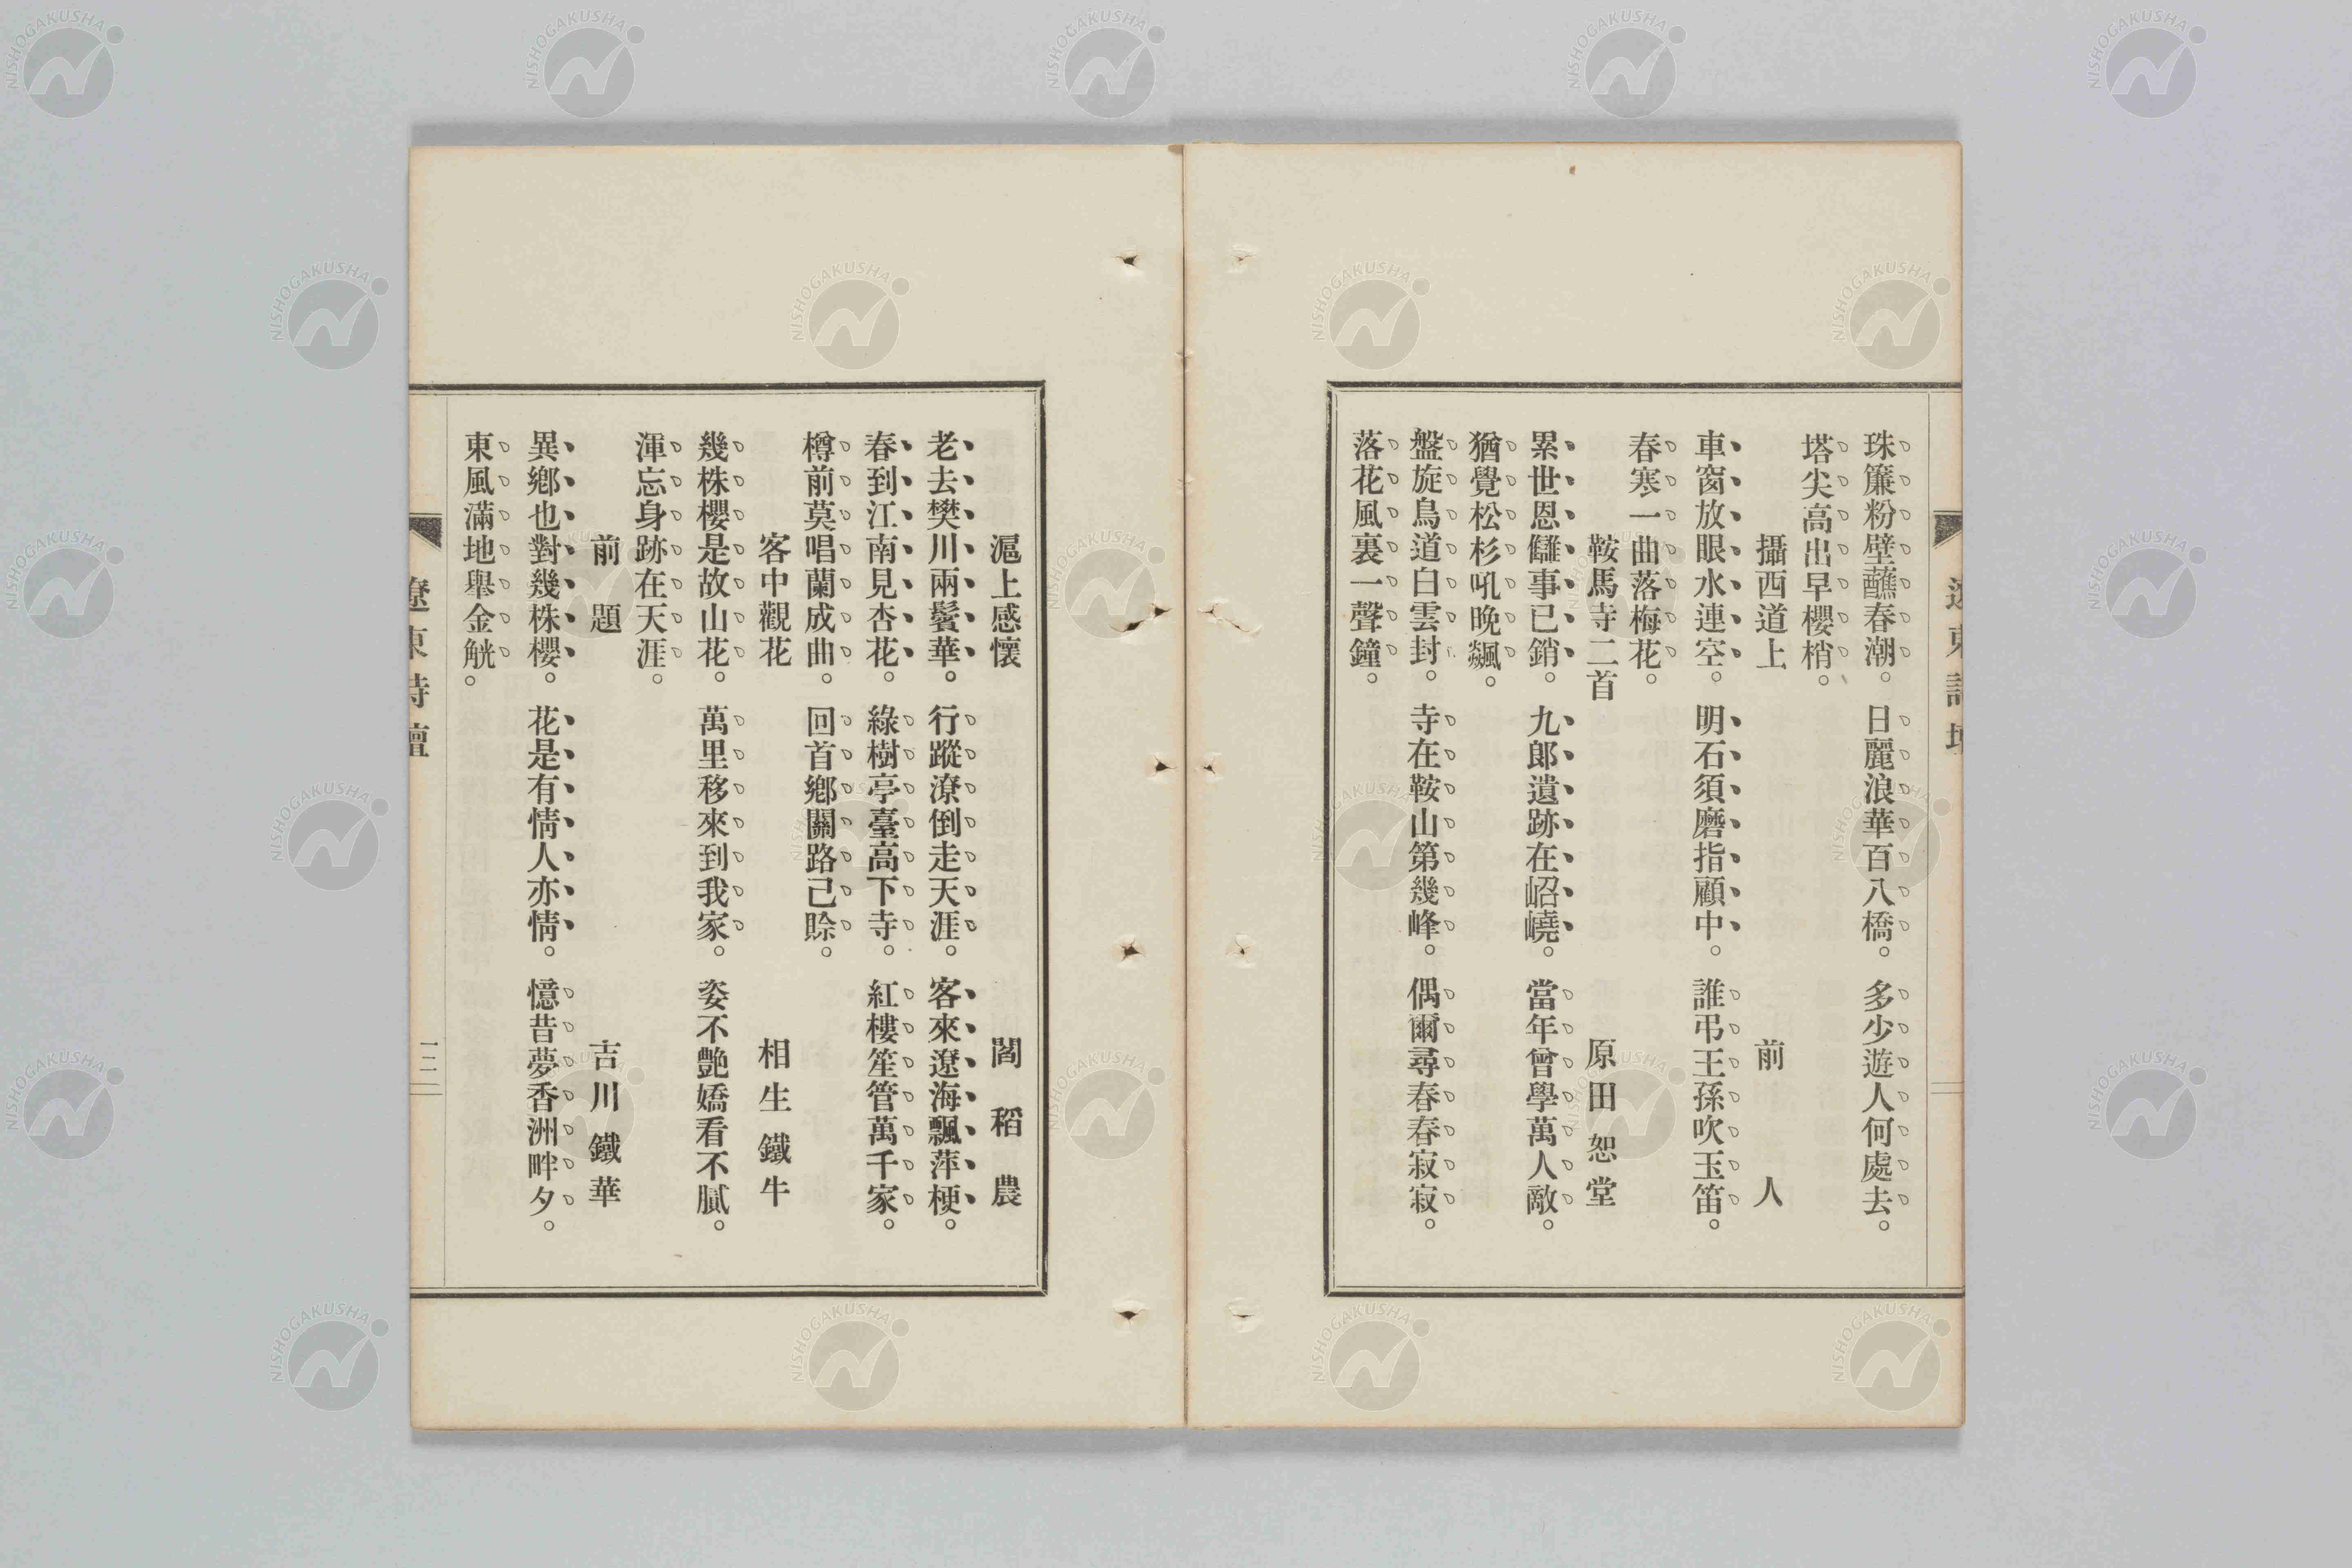 珠簾粉壁蘸春潮。日麗浪華百八橋。多少遊人何處去。
塔尖高出早櫻梢。
攝西道上　前人
車窗放眼水連空。明石須磨指顧中。誰弔王孫吹玉笛。
春寒一曲落梅花。
鞍馬寺二首　原田恕堂
累世恩讎事已銷。九郎遺跡在岹嶢。當年曾學萬人敵。
猶覺松杉吼晚飆。
盤旋鳥道白雲封。寺在鞍山第幾峰。偶爾尋春春寂寂。
落花風裏一聲鐘。
滬上感懷　閻稻農
老去樊川兩鬢華。行蹤潦倒走天涯。客來遼海飄萍梗。
春到江南見杏花。綠樹亭臺高下寺。紅樓笙管萬千家。
樽前莫唱蘭成曲。回首鄉關路已賒。
客中觀花　相生鐵牛
幾株櫻是故山花。萬里移來到我家。姿不艷嬌看不膩。
渾忘身跡在天涯。
前題　吉川鐵華
異鄉也對幾株櫻。花是有情人亦情。憶昔夢香洲畔夕。
東風滿地舉金觥。
遼東詩壇
一二
NISHOGAKUSHA